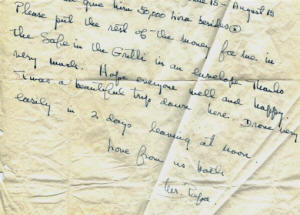 give him 50,000 lira besides
Please put the rest of the money for me in
the Safe in the Gritti in an envelope. Thanks
very much. Hope everyone well and happy.
Twas a beautiful trip down here. Drove very
easily in 2 days leaving at noon.
Love from us both
Mr. Papa.